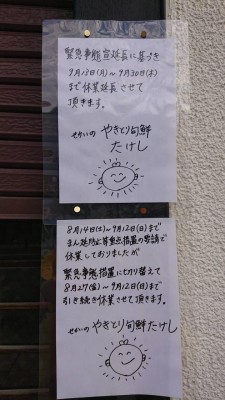 緊急事態宣延長に基づき
9月13日(月)〜9月30日(木)
まで休業延長させて
頂きます。
せかいの やきとり旬鮮
たけし
8月14日(土)〜9月12日(日)まで
まん延防止等重点措置の要請で
休業しておりましたが
緊急事態措置に切り替えて
8月27日(金)〜9月12日(日)まで
引き続き休業させて頂きます。
せかいの やきとり旬鮮たけし